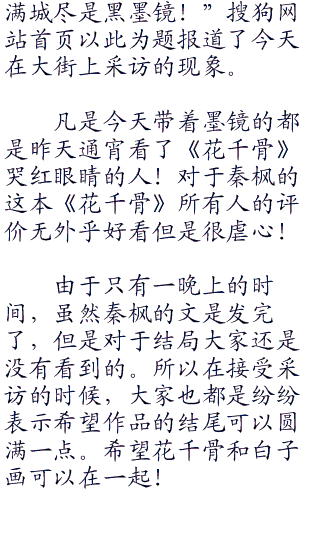 满城尽是黑墨镜！”搜狗网
站首页以此为题报道了今天
在大街上采访的现象。
凡是今天带着墨镜的都
是昨天通宵看了《花千骨》
哭红眼睛的人！对于秦枫的
这本《花千骨》所有人的评
价无外乎好看但是很虐心！
由于只有一晚上的时
间，虽然秦枫的文是发完
了，但是对于结局大家还是
没有看到的。所以在接受采
访的时候，大家也都是纷纷
表示希望作品的结尾可以圆
满一点。希望花千骨和白子
画可以在一起！